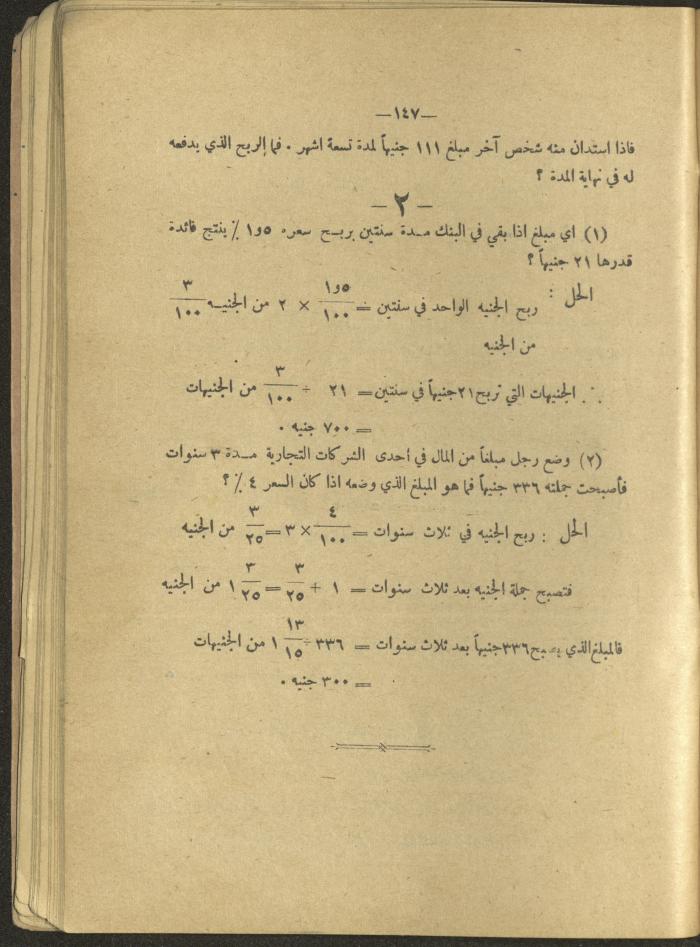 —١٤٧—
فاذا استدان منه شخص آخر مبلغ ١١١ جنيهاً لمدة تسعة اشهر . فما الربح الذي يدفعه
له في نهاية المدة ؟
— ٢ —
(١) اي مبلغ اذا بقي في البنك مدة سنتين بربح سعره ١و٥ ٪ ينتج فائدة
قدرها ٢١ جنيهاً ؟
الحل : ربح الجنيه الواحد في سنتين = ١و٥/١٠٠ × ٢ من الجنيه ٣/١٠٠
من الجنيه
∴ الجنيهات التي تربح ٢١ جنيهاً في سنتين = ٢١ ÷ ٣/١٠٠ من الجنيهات
= ٧٠٠ جنيه .
(٢) وضع رجل مبلغاً من المال في أحدى الشركات التجارية مدة ٣ سنوات
فأصبحت جملته ٣٣٦ جنيهاً فما هو المبلغ الذي وضعه اذا كان السعر ٤ ٪ ؟
الحل : ربح الجنيه في ثلاث سنوات = ٤/١٠٠ × ٣ = ٣/٢٥ من الجنيه
فتصبح جملة الجنيه بعد ثلاث سنوات = ١ + ٣/٢٥ = ٣/٢٥ ١ من الجنيه
فالمبلغ الذي يصبح ٣٣٦ جنيهاً بعد ثلاث سنوات = ٣٣٦ ÷ ١٣/١٥ ١ من الجنيهات
= ٣٠٠ جنيه .